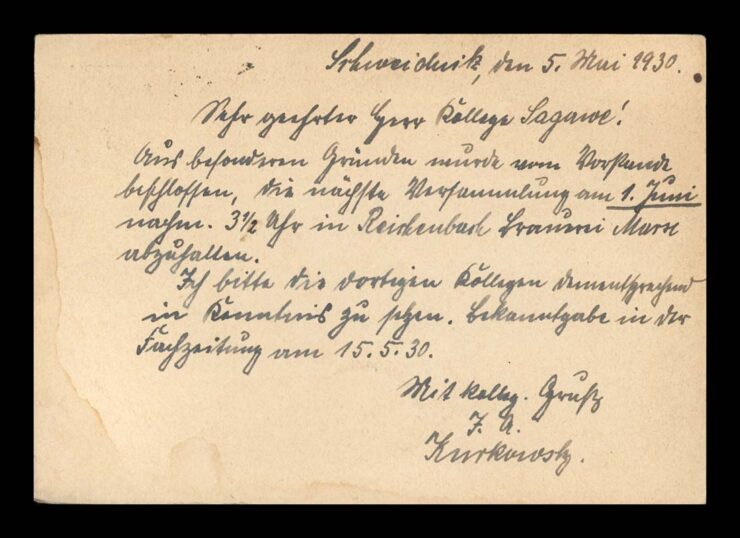 Schweidnitz, den 5. Mai 1930.
Sehr geehrter Herr Kollege Sagawe!
Aus besonderen Gründen wurde vom Vorstande
beschlossen, die nächste Versammlung am 1. Juni
nachm. 3 1/2 Uhr in Reichenbach Brauerei
abzuhalten.
Ich bitte die dortigen Kollegen dementsprechend
in Kenntnis zu setzen. Bekanntgabe in der
Fachzeitung am 15.5.30.
Mit kolleg. Gruß
J. A.